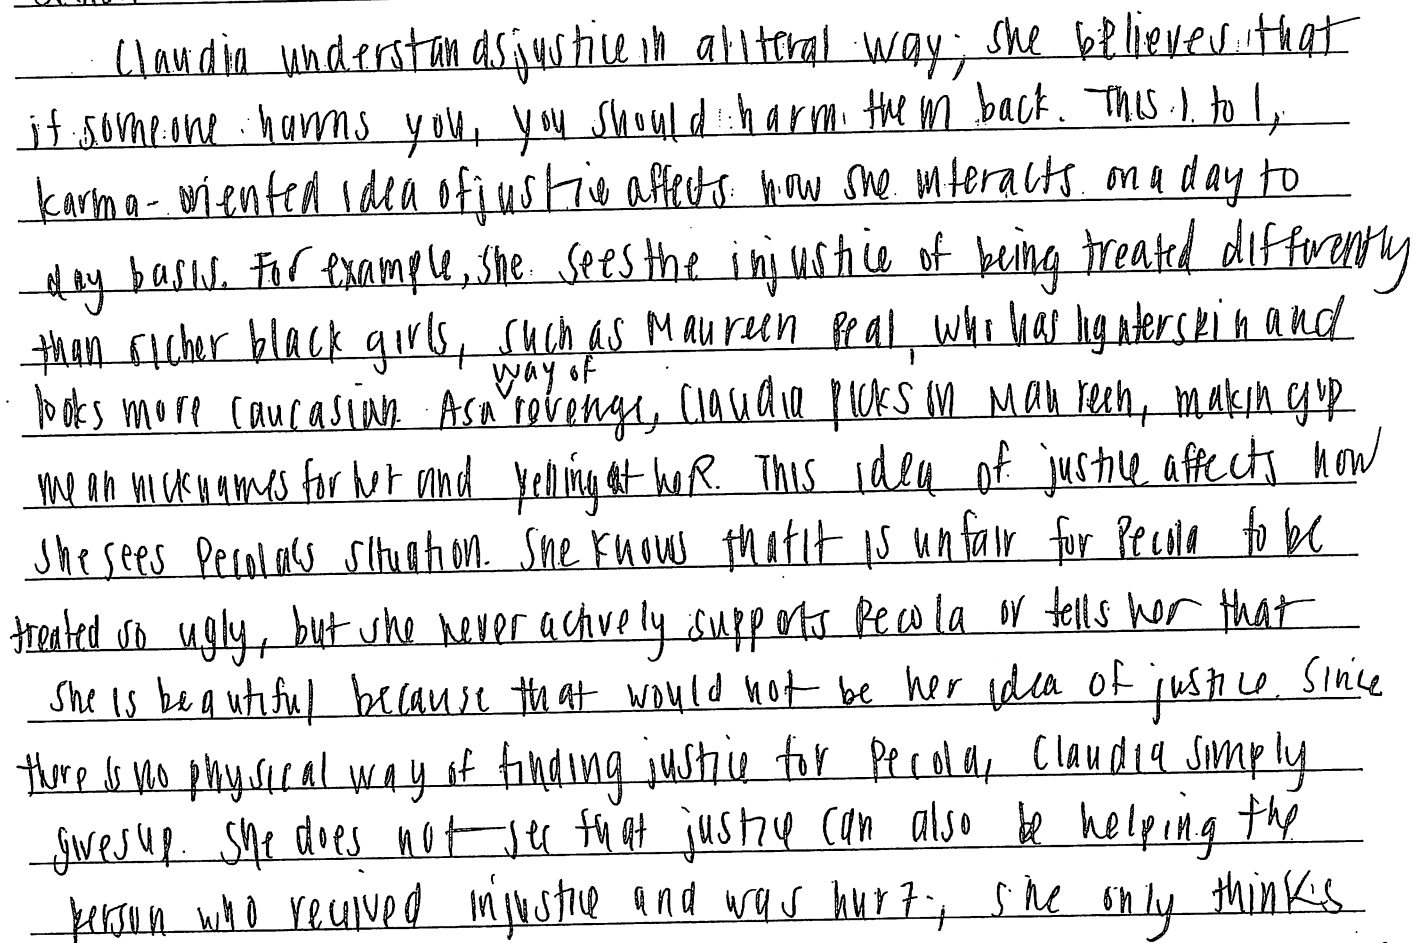 Claudia understands justice in a literal way; she believes that
if someone harms you, you should harm them back. This 1 to 1,
karma-oriented idea of justice affects how she interacts on a day to
day basis. For example, she sees the injustice of being treated differently
than richer black girls, such as Maureen Peal, who has lighter skin and
way of
looks more caucasian. As a revenge, Claudia picks on Maureen, making up
mean nicknames for her and yelling at her. This idea of justice affects how
she sees Pecola's situation. She knows that it is unfair for Pecola to be
treated so ugly, but she never actively supports Pecola or tells her that
she is beautiful because that would not be her idea of justice. Since
there is no physical way of finding justice for Pecola, Claudia simply
gives up. She does not see that justice can also be helping the
person who recieved injustice and was hurt; she only thinks